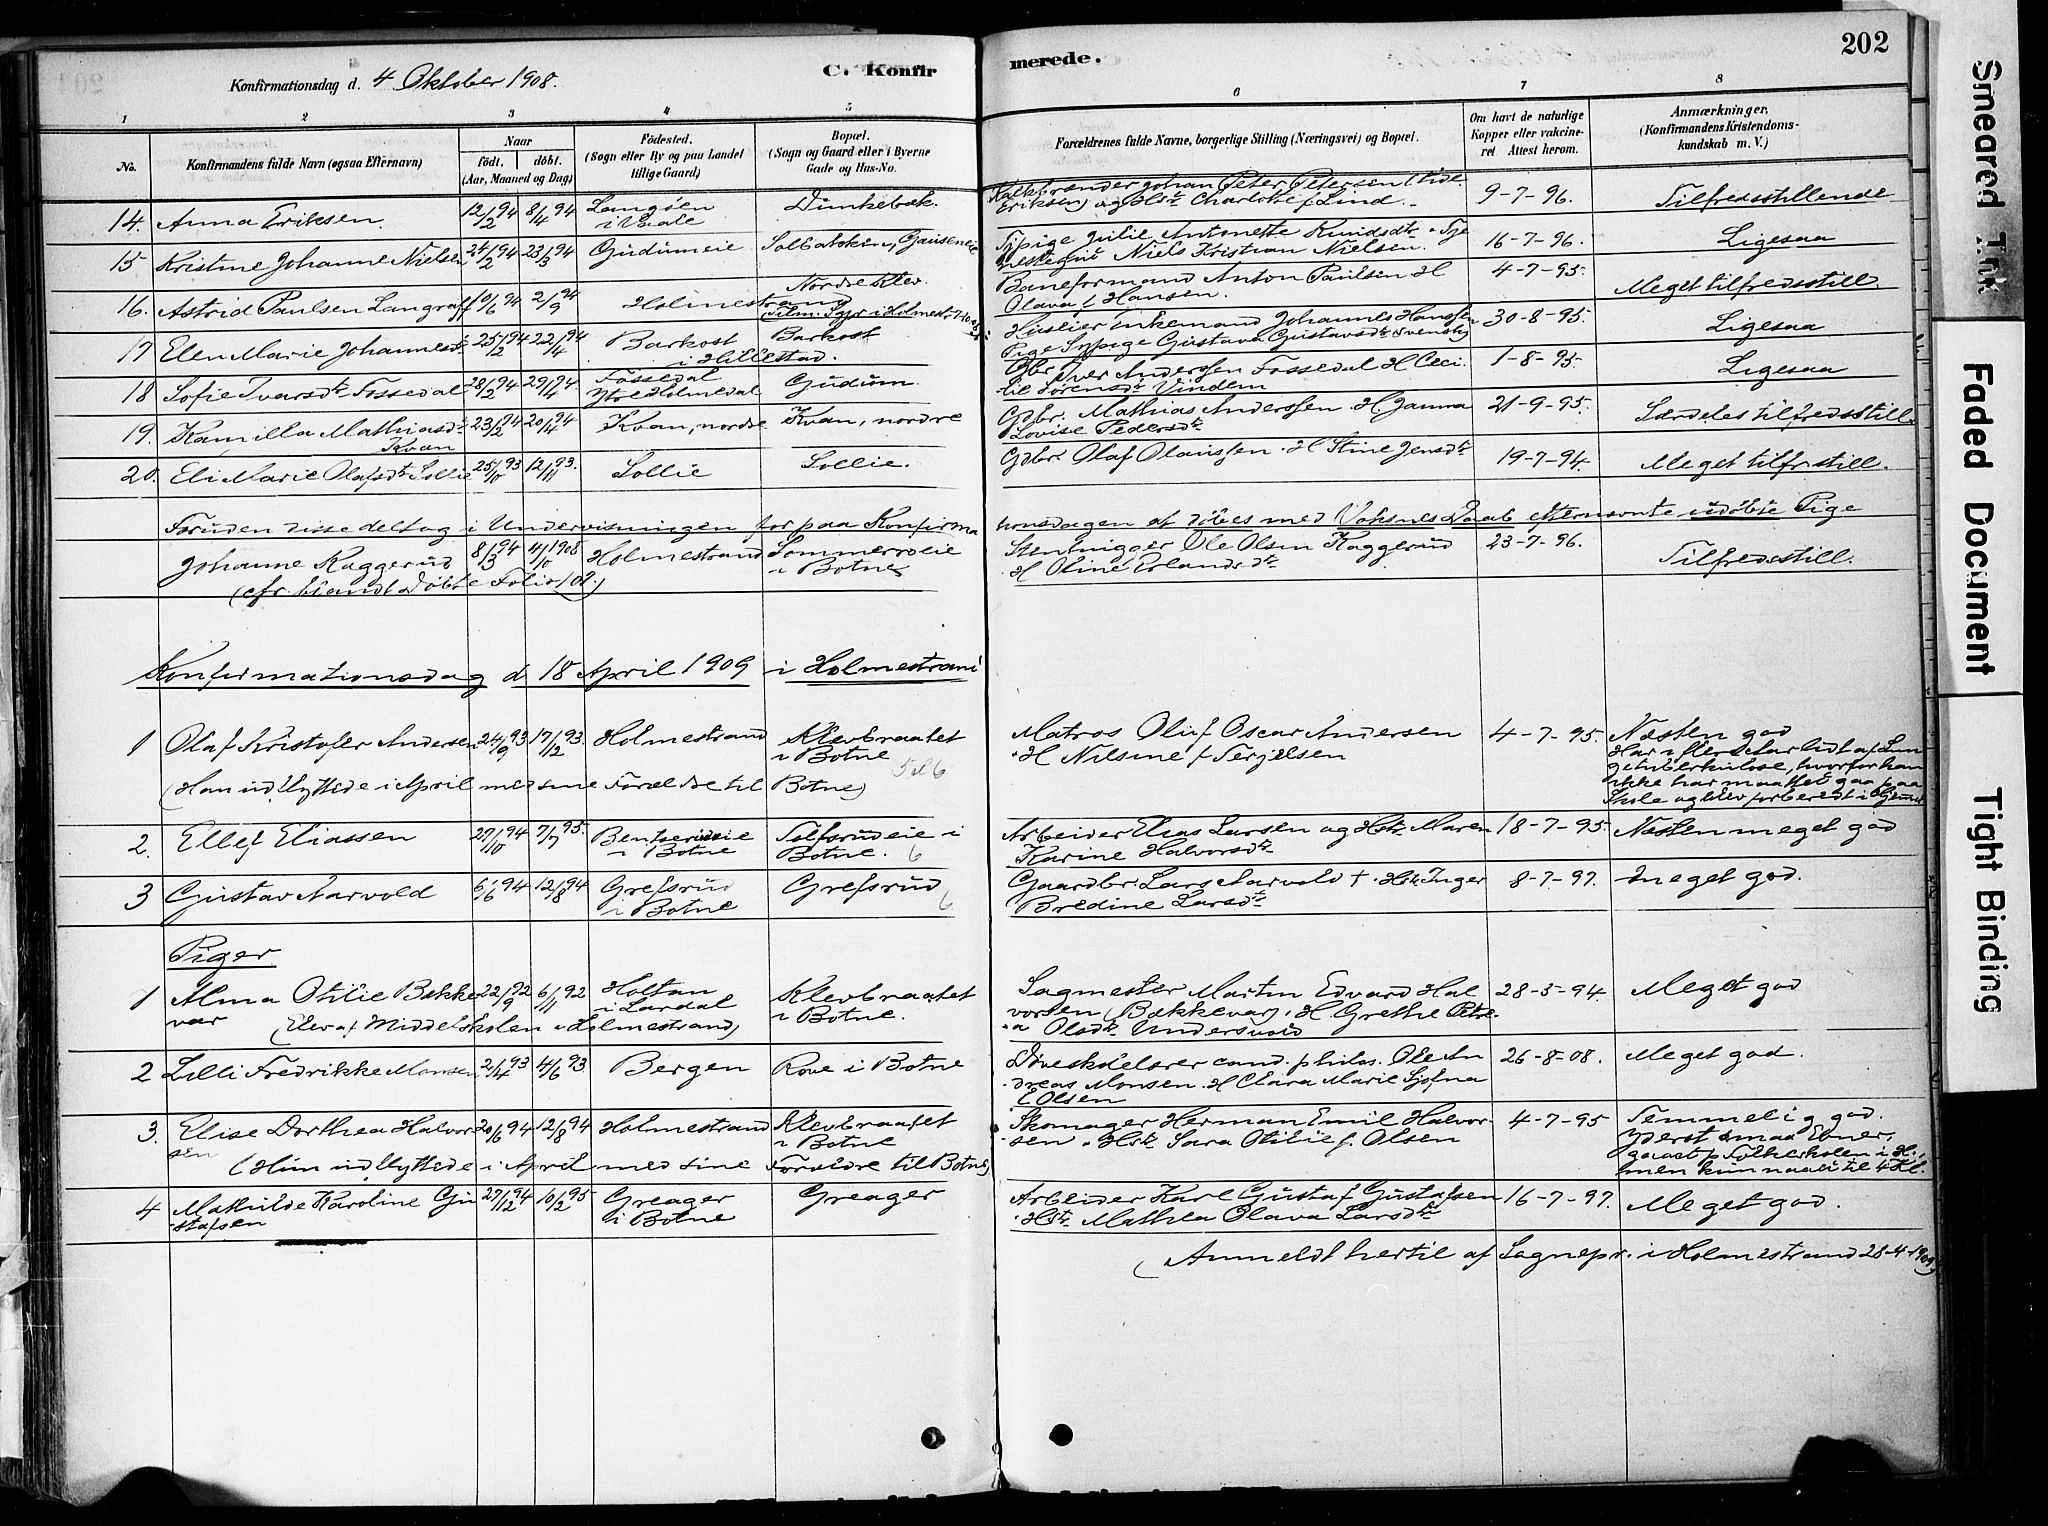 202
C. Konfirmerede.
Konfirmationsdag d. 4 Oktober 1908.
1 2 3 4 5 6 7 8
No. Konfirmandens fulde Navn (ogsaa Efternavn) Naar født. døbt. (Aar, Maaned og Dag) Fødested. (Sogn eller By og paa Landet tillige Gaard) Bopæl. (Sogn og Gaard eller i Byerne Gade og Hus-No. Forældrenes fulde Navne, borgerlige Stilling (Næringsvei) og Bopæl. Om havt de naturlige Kopper eller vakcineret Attest herom. Anmærkninger. (Konfirmandens Kristendomskundskab m. V.)
14. Anna Eriksen. 12/2 94 8/4 94 Langøen i Vaale Dunkebæk. Kalkbrænder Johan Peter Petersen
Eriksen) og Hstr Charlotte f Lind. 9-7-96. Tilfredsstillende
15 Kristine Johanne Nielsen 24/2 94 23/3 94 Gudumeie Solbakken, Gauseneie Tjpige Julie Antonette Knudsdtr
Niels Kristian Nielsen. 16-7-96. Ligesaa
16. Astrid Paulsen Langraff 10/6 94 2/9 94 Holmestrand Nordre Klev. Baneformand Anton Paulsen H
Olava f Hansen. 4-7-95. Meget tilfredsstill.
17 Elen Marie Johannesdtr 25/2 94 22/4 94 Barkost i Hillestad. Barkost Huslier Enkemand Johannes Hanssen
Pige Sypige Gustava Gustavsdtr Svensky 30-8-95. Ligesaa
18 Sofie Ivarsdtr Fossedal 28/2 94 29/4 94. Fossedal Ytre Holmedal Gudum. Gbr Iver Anderssen Fossedal H Ceci
lie Sørensdtr Vindem 1-8-95. Ligesaa
19. Kamilla Mathiasdtr Kvan 23/2 94 20/4 94 Kvan, nordre Kvan, nordre Gdbr. Mathias Anderssen. H Janna
Lovise Pedersdtr 21-9-95. Særdeles tilfredsstill.
20. Eli Marie Olafsdtr Sollie 25/10 93 12/11 93. Sollie Sollie. Gdbr. Olaf Olaussen. H Stine Jensdtr 19-7-94. Meget tilfrstill.
Foruden disse deltog i Undervisningen for paa Konfirmationsdagen at døbes med Voksnes Daab efternævnte udøbte Pige
Johanne Kaggerud 8/3 94 4/10 1908 Holmestrand Sommerroeie i Botne Stenhugger Ole Olsen Kaggerud
H Oline Erlandsdtr 23-7-96. Tilfredsstill.
(cfr. blandt Døbte Folio 102.)
Konfirmationsdag d 18 April 1909 i Holmestrand
1 Olaf Kristofer Andersen 24/9 93 17/12 93. Holmestrand Klevbraatet i Botne Matros Oluf Oscar Andersen
H Nilsine f Terjelsen 4-7-95. Næsten god
Har i flere Aar lidt af Lun
getuberkulose, hvorfor han
ikke har maattet gaa paa
Skole og blev forberedt i
(Han indflyttede i April med sine Forældre til Botne)
2. Ellef Eliassen 27/10 94 7/7 95. Bentserudeie i Botne Solfsrudeie i Botne. 6 Arbeider Elias Larsen og Hstr Maren
Karine Halvorsdtr 18-7-95. Næsten meget god
3 Gustav Aarvold 6/6 94 12/8 94 Grefsrud i Botne Grefsrud 6 Gaardbr. Lars Aarvold † . Hstr Inger
Bredine Larsdtr 8-7-97. Meget god.
Piger
1 Alma Otilie Bækkevar 22/9 92 6/11 92 Holtan i Lardal Klevbraatet i Botne. Sagmester Martin Edvard Hal
vorsen (Bækkevar). H Grethe Petre
a Olsdtr Undersvold 28-5-94. Meget god
(Elev af Middelskolen i Holmestrand)
2 Lilli Fredrikke Monsen 2/4 93 4/6 93 Bergen Rove i Botne Døveskolelærer cand. philos. Ole An
dreas Monsen. H Clara Marie Sjofna
f Olsen 26-8-08. Meget god.
3. Elise Dorthea Halvorsen 20/6 94 12/8 94 Holmestrand Klevbraatet i Botne Skomager Herman Emil Halvor
sen. Hstr Sara Otilie f. Olsen 4-7-95 Temmelig god.
Yderst smaa Evner,
gaaet p Folkeskolen i H.,
men kun naaet til 4 Kl.
(Hun indflyttede i April med sine Forældre til Botne)
4 Mathilde Karoline Gustafsen 27/12 94 10/2 95 Greager i Botne Greager Arbeider Karl Gustaf Gustafsen
Hstr Mathea Olava Larsdtr 16-7-97. Meget god.
(Anmeldt hertil af Sognepr. i Holmestrand 28-4-1909)
Smeared Ink
Faded Document
Tight Binding